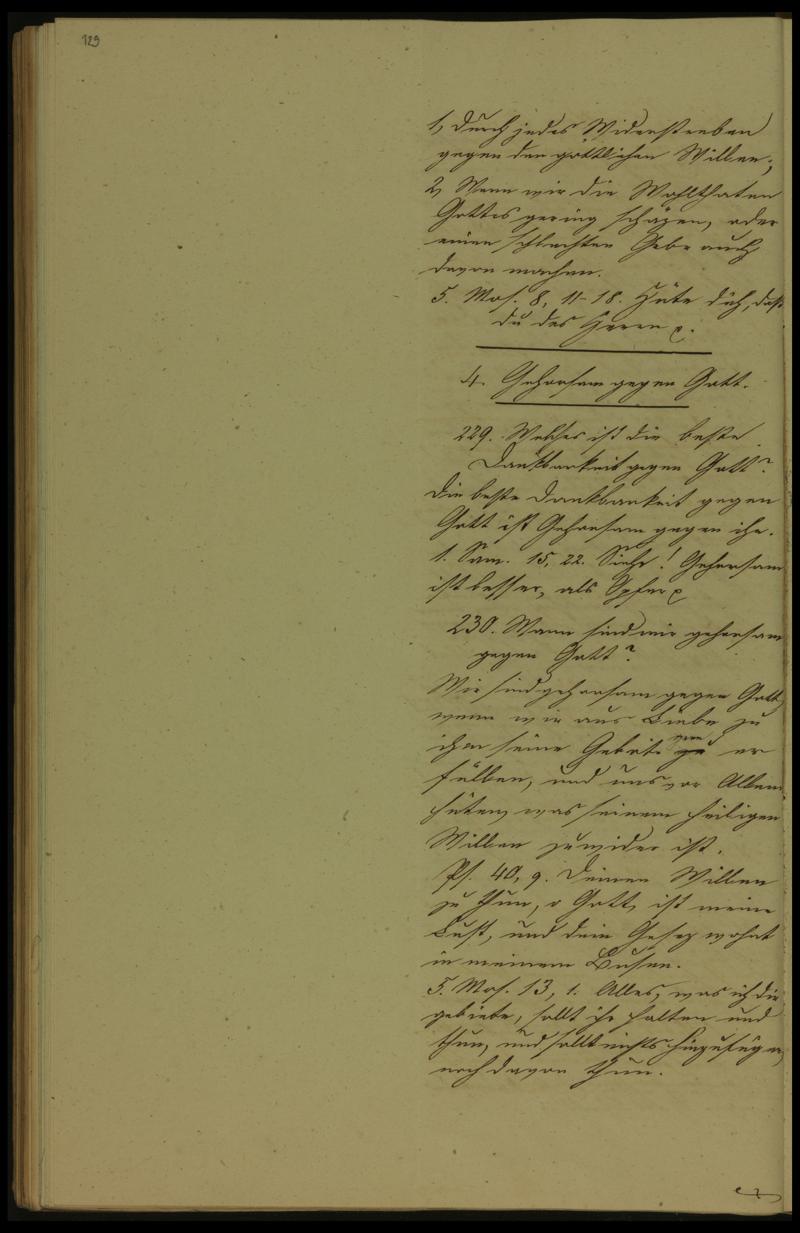 129
1, Durch jedes Widerstreben
gegen den göttlichen Willen;
2, Wenn wir die Wohlthaten
Gottes gering schäzen, oder
einen schlechten Gebrauch
davon machen.
5. Mos. 8, 11-18. Hüte dich, daß
du des Herrn
4. Gehorsam gegen Gott.
229. Welches ist die beste
Dankbarkeit gegen Gott?
Die beste Dankbarkeit gegen
Gott ist Gehorsam gegen ihn.
1. Sam. 15, 22. Siehe! Gehorsam
ist besser, als Opfer
230. Wann sind wir gehorsam
gegen Gott?
Wir sind gehorsam gegen Gott,
wenn wir aus Liebe zu
ihm seine Gebote zu er
füllen, und uns vor Allem
hüten, was seinem heiligen
Willen zuwider ist.
Ps. 40, 9. Deinen Willen
zu thun, o Gott, ist meine
Lust, und dein Gesez wohnt
in meinem Busen.
5. Mos. 13, 1. Alles, was ich dir
gebiete, sollt ihr halten und
thun, und sollt nichts hinzufügen,
noch davon thun.